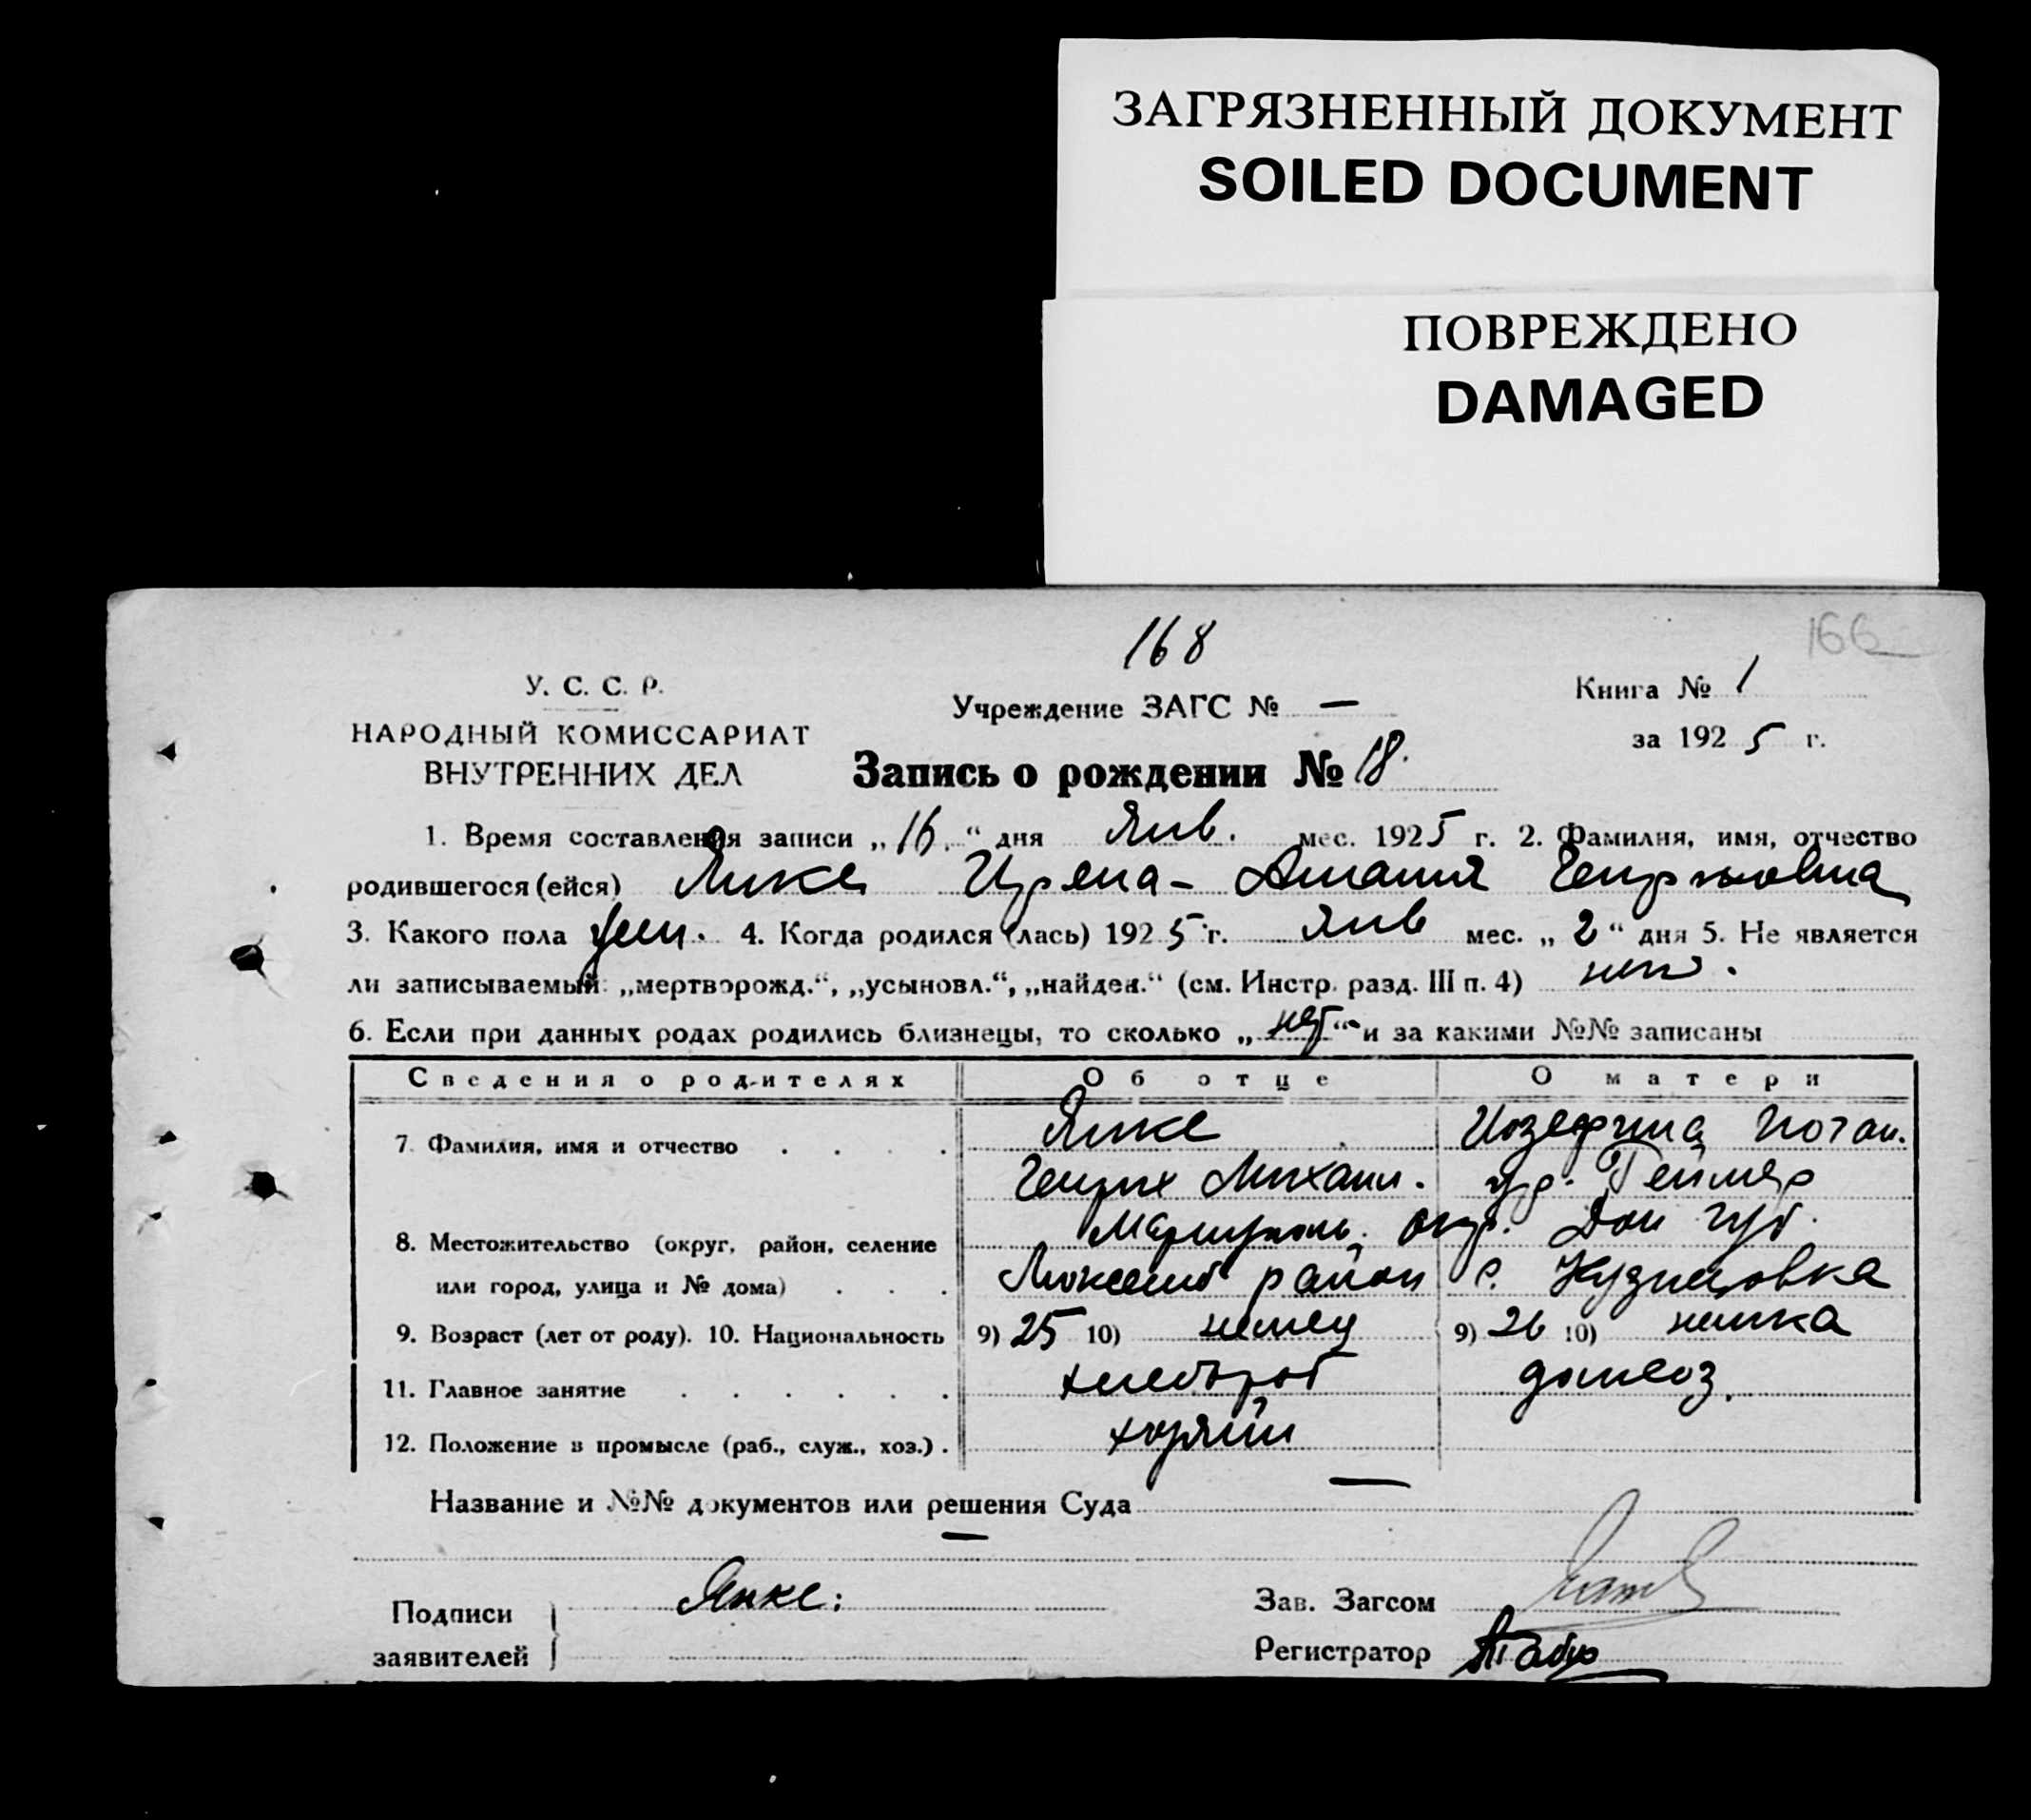 ЗАГРЯЗНЕННЫЙ ДОКУМЕНТ
SOILED DOCUMENT
ПОВРЕЖДЕНО
DAMAGED
168
166
У. С. С. Р.
НАРОДНЫЙ КОМИССАРИАТ
ВНУТРЕННИХ ДЕЛ
Учреждение ЗАГС № —
Книга № 1
за 1925 г.
Запись о рождении № 18.
1. Время составления записи „16.“ дня Янв. мес. 1925 г. 2. Фамилия, имя, отчество
родившегося (ейся) Янке Ирена- Амалия Генриховна
3. Какого пола жен. 4. Когда родился (лась) 1925 г. Янв мес. „2“ дня 5. Не является
ли записываемый: „мертворожд.“, „усыновл.“, „найден.“ (см. Инстр. разд. III п. 4) нет.
6. Если при данных родах родились близнецы, то сколько „нет“ и за какими №№ записаны
Сведения о родителях Об отце О матери
7. Фамилия, имя и отчество . . . . Янке Иозефина Иоган.
Генрих Михаил. ур. Геймер
8. Местожительство (округ, район, селение Мариуполь. окр. Дон губ.
или город, улица и № дома) . . . район с. Кузнецовка
9. Возраст (лет от роду). 10. Национальность 9) 25 10) немец 9) 26 10) немка
11. Главное занятие . . . . . . хлебороб домхоз.
12. Положение в промысле (раб., служ., хоз.) . хозяин
Название и №№ документов или решения Суда —
—
Подписи
заявителей
Янке:
Зав. Загсом
Регистратор